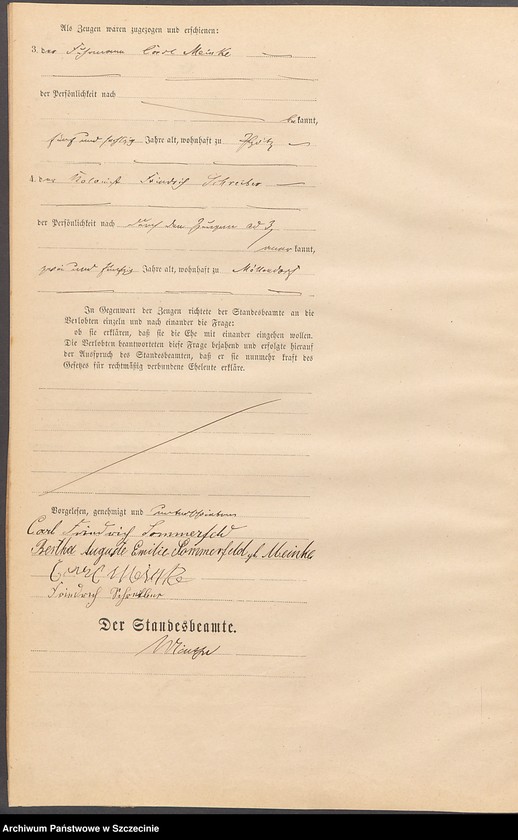 Als Zeugen waren zugezogen und erschienen:
3. der Fuhrmann Carl Meinke
der Persönlichkeit nach
bekannt,
fünf und sechzig Jahre alt, wohnhaft zu
4. der Kolonist Friedrich Schreiber
der Persönlichkeit nach durch den Zeugen ad 3
anerkannt,
zwei und fünfzig Jahre alt, wohnhaft zu Möllendorf
In Gegenwart der Zeugen richtete der Standesbeamte an die
Verlobten einzeln und nach einander die Frage:
ob sie erklären, daß sie die Ehe mit einander eingehen wollen.
Die Verlobten beantworteten diese Frage bejahend und erfolgte hierauf
der Ausspruch des Standesbeamten, daß er sie nunmehr kraft des
Gesetzes für rechtmäßig verbundene Eheleute erkläre.
Vorgelesen, genehmigt und unterschrieben
Carl Friedrich Sommerfeld
Bertha Auguste Emilie Sommerfeld geb Meinke
Carl Meinke
Friedrich Schreiber
Der Standesbeamte.
Archiwum Państwowe w Szczecinie